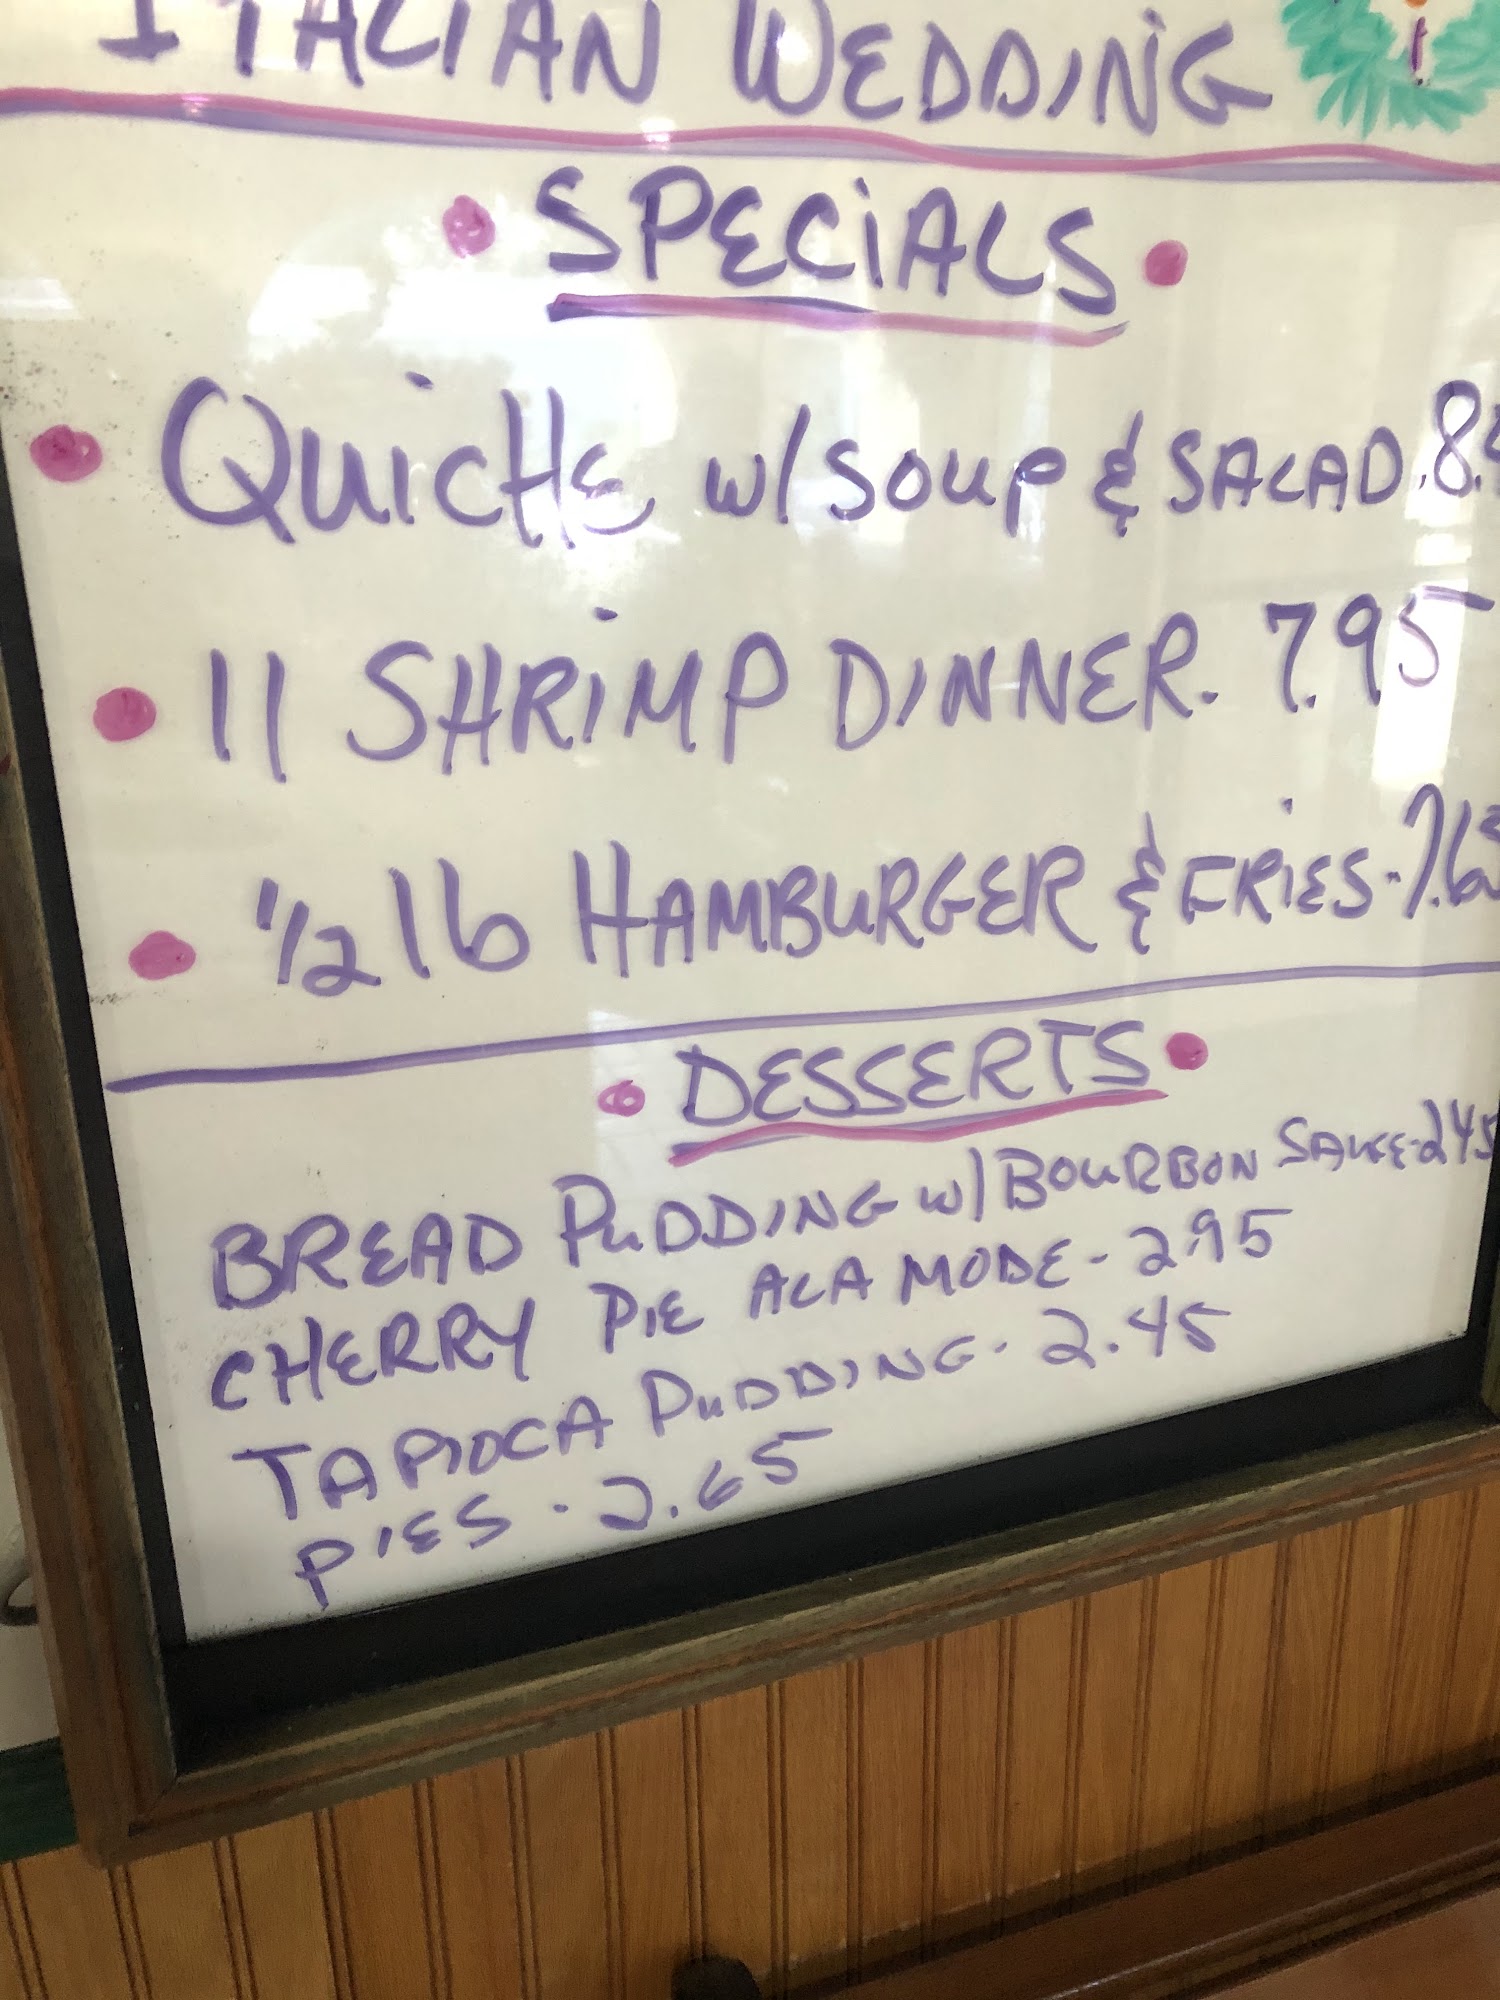 ITALIAN WEDDING
• SPECIALS •
• QUICHE w/ SOUP & SALAD . 8.
• 11 SHRIMP DINNER . 7.95
• 1/2 lb HAMBURGER & FRIES - 7.65
• DESSERTS •
BREAD PUDDING w/ BOURBON SAUCE - 2.45
CHERRY PIE ALA MODE - 2.95
TAPIOCA PUDDING - 2.45
PIES - 2.65